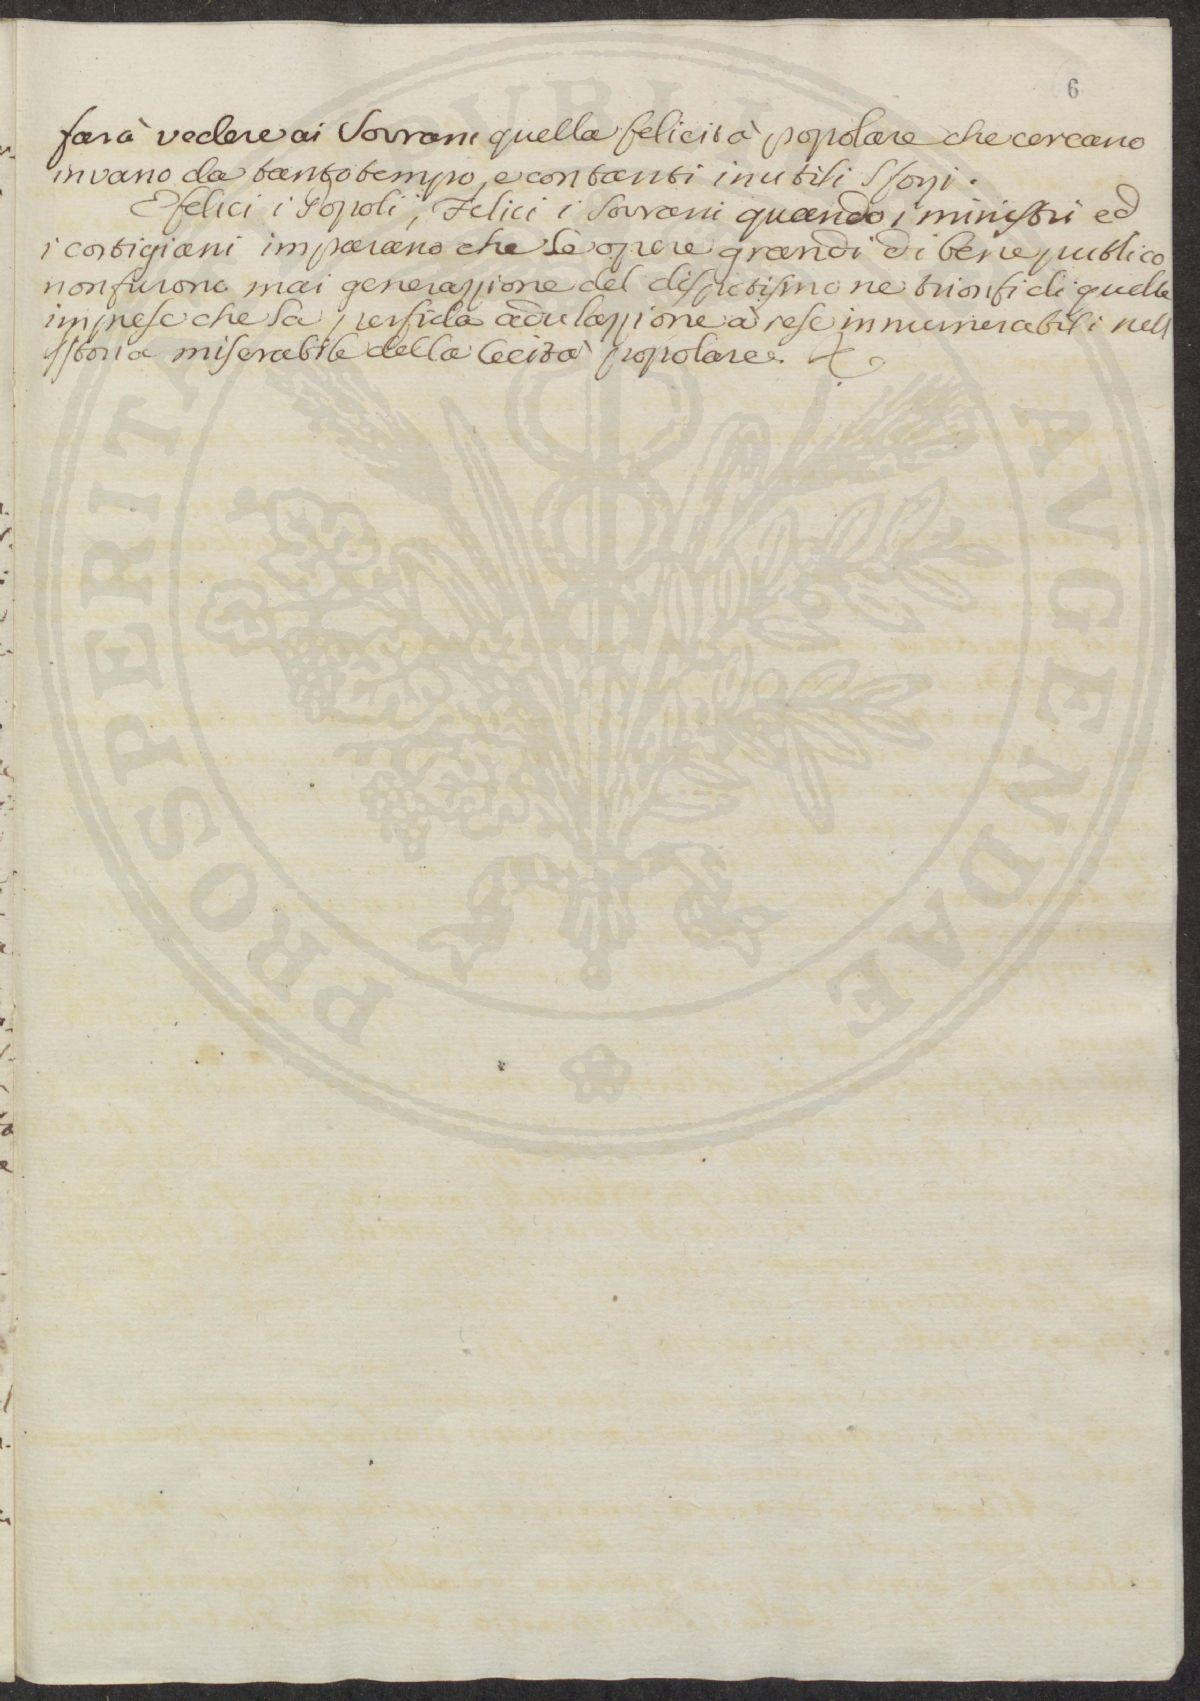 6
farà vedere ai Sovrani quella felicità popolare che cercano
invano da tanto tempo, e con tanti inutili Sforzi.
E felici i Popoli, Felici i Sovrani quando i ministri ed
i cortigiani imparano che le opere grandi di bene publico
non furono mai generazzione del dispotismo ne trionfi di quelle
imprese che la perfida adulazzione à rese innumerabili nell
istoria miserabile della Cecità popolare.
PROSPERITATI PUBLI AVGENDAE